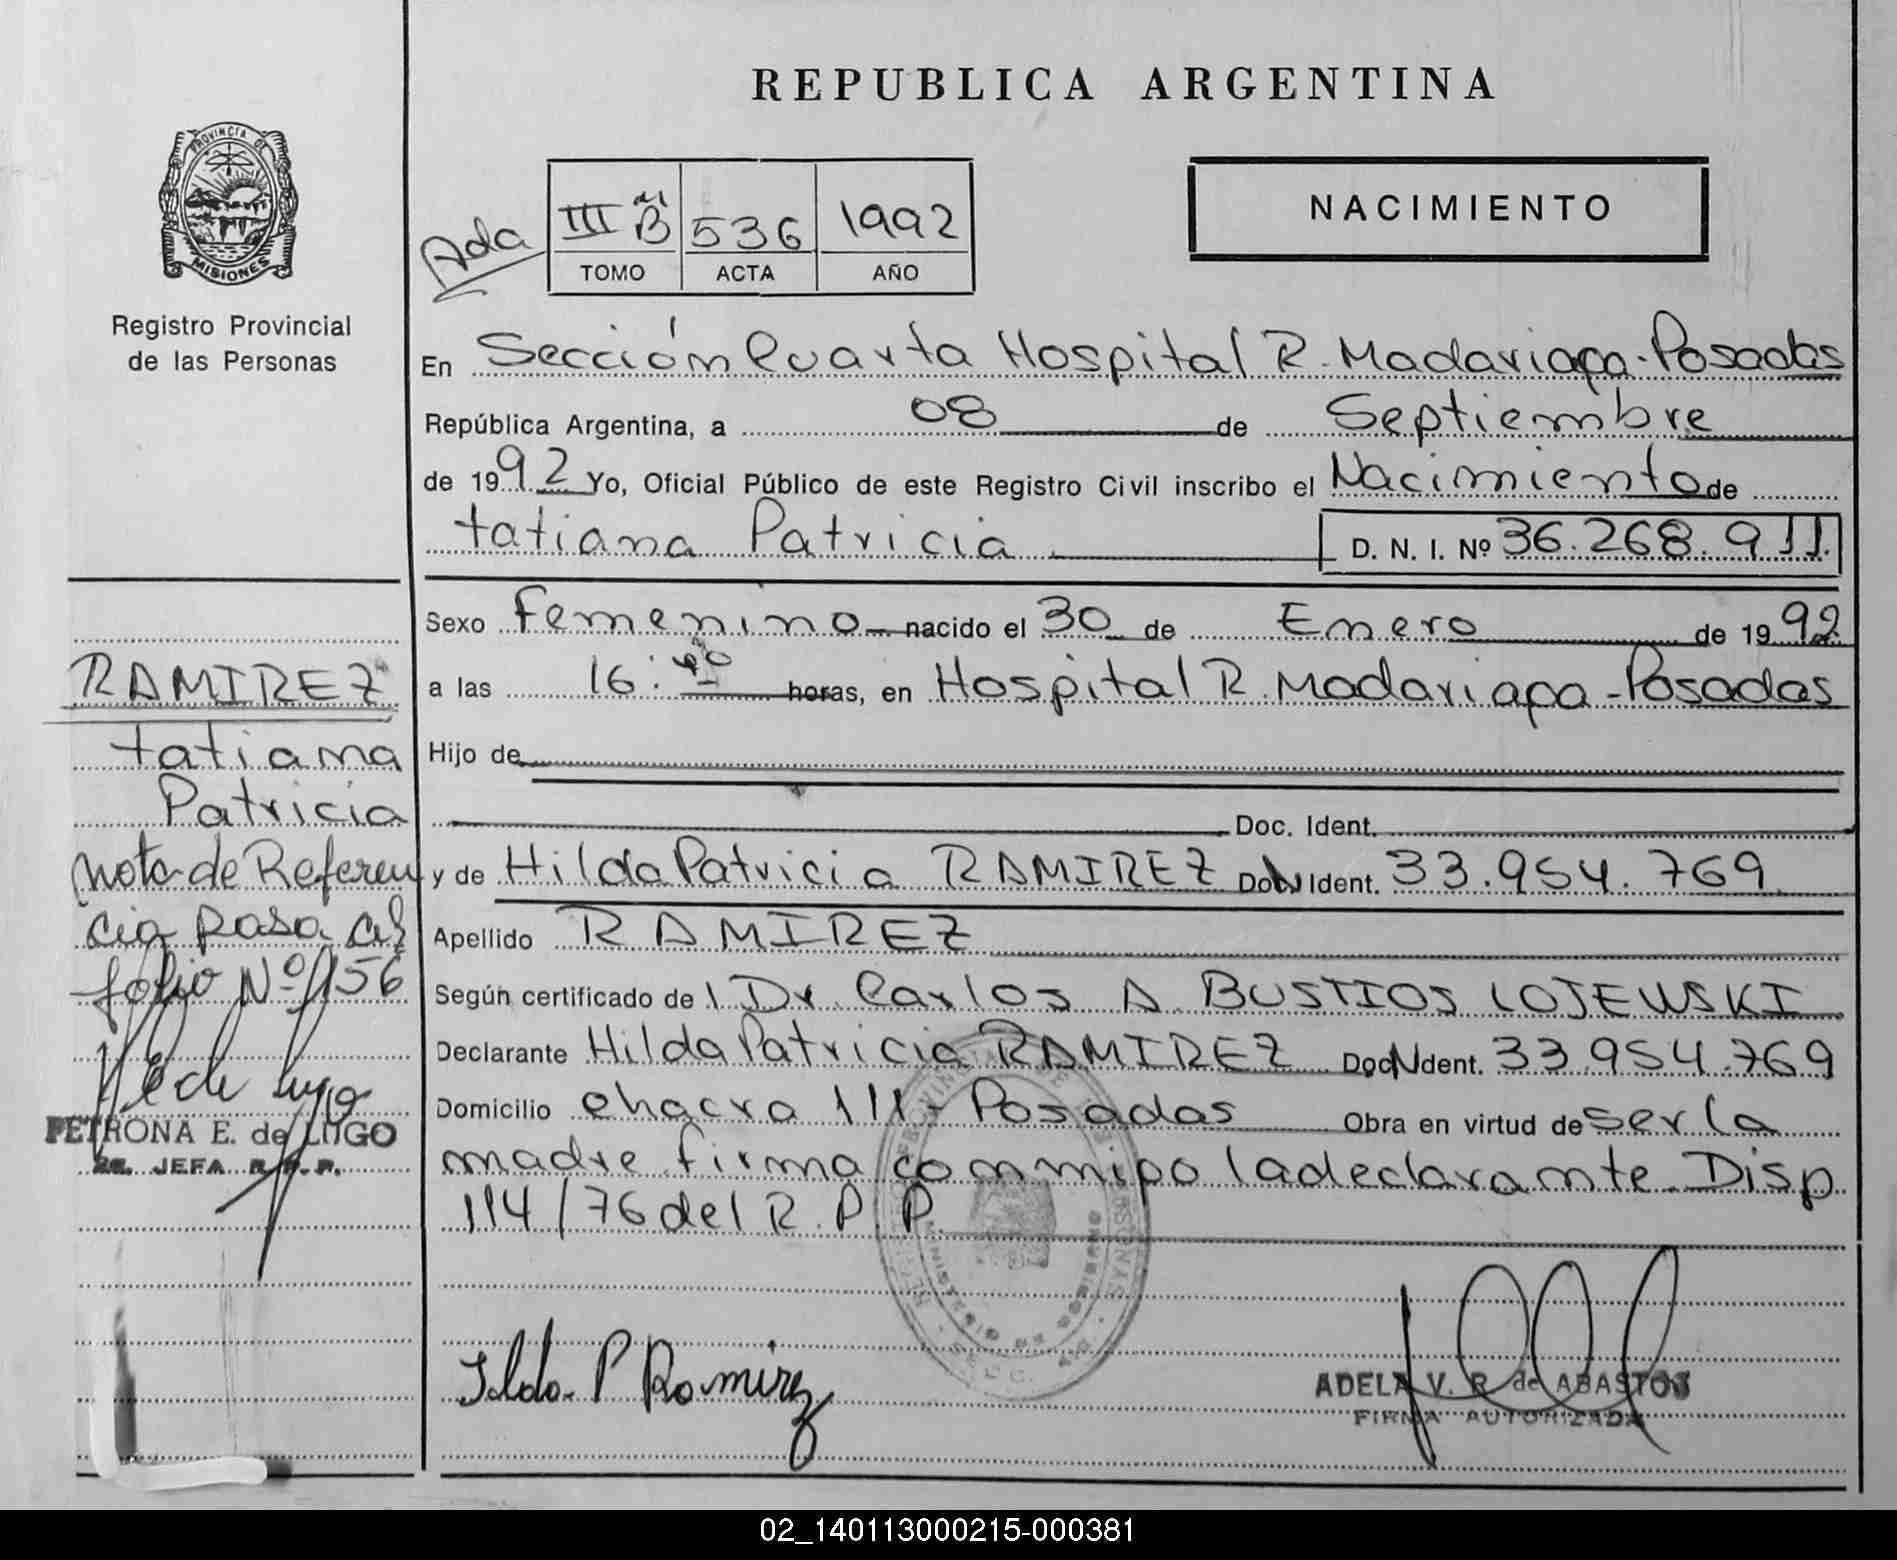 REPUBLICA ARGENTINA
PROVINCIA DE
MISIONES
Registro Provincial
de las Personas
Ada
III B 536 1992
TOMO ACTA AÑO
NACIMIENTO
En Sección Cuarta Hospital R. Madariaga-Posadas
República Argentina, a 08 de Septiembre
de 1992 Yo, Oficial Público de este Registro Civil inscribo el Nacimiento de
tatiana Patricia D. N. I. Nº 36.268.911
Sexo Femenino nacido el 30 de Enero de 1992
a las 16: horas, en Hospital R. Madariaga-Posadas
Hijo de
Doc. Ident.
y de Hilda Patricia RAMIREZ Doc Ident. 33.954.769
Apellido RAMIREZ
Según certificado de Dr. Carlos A. BUSTIOS LOJEWSKI
Declarante Hilda Patricia RAMIREZ Doc Ident. 33.954.769
Domicilio chacra 111 - Posadas Obra en virtud de ser la
madre firma conmigo la declarante. Disp
114/76 del R. P. P.
RAMIREZ
tatiana
Patricia
Nota de Referen
cia pasa al
folio Nº 156
PETRONA E. de LUGO
JEFA R.P.P.
Hilda P Ramirez
ADELA V. R. de ABASTOS
FIRMA AUTORIZADA
02_140113000215-000381